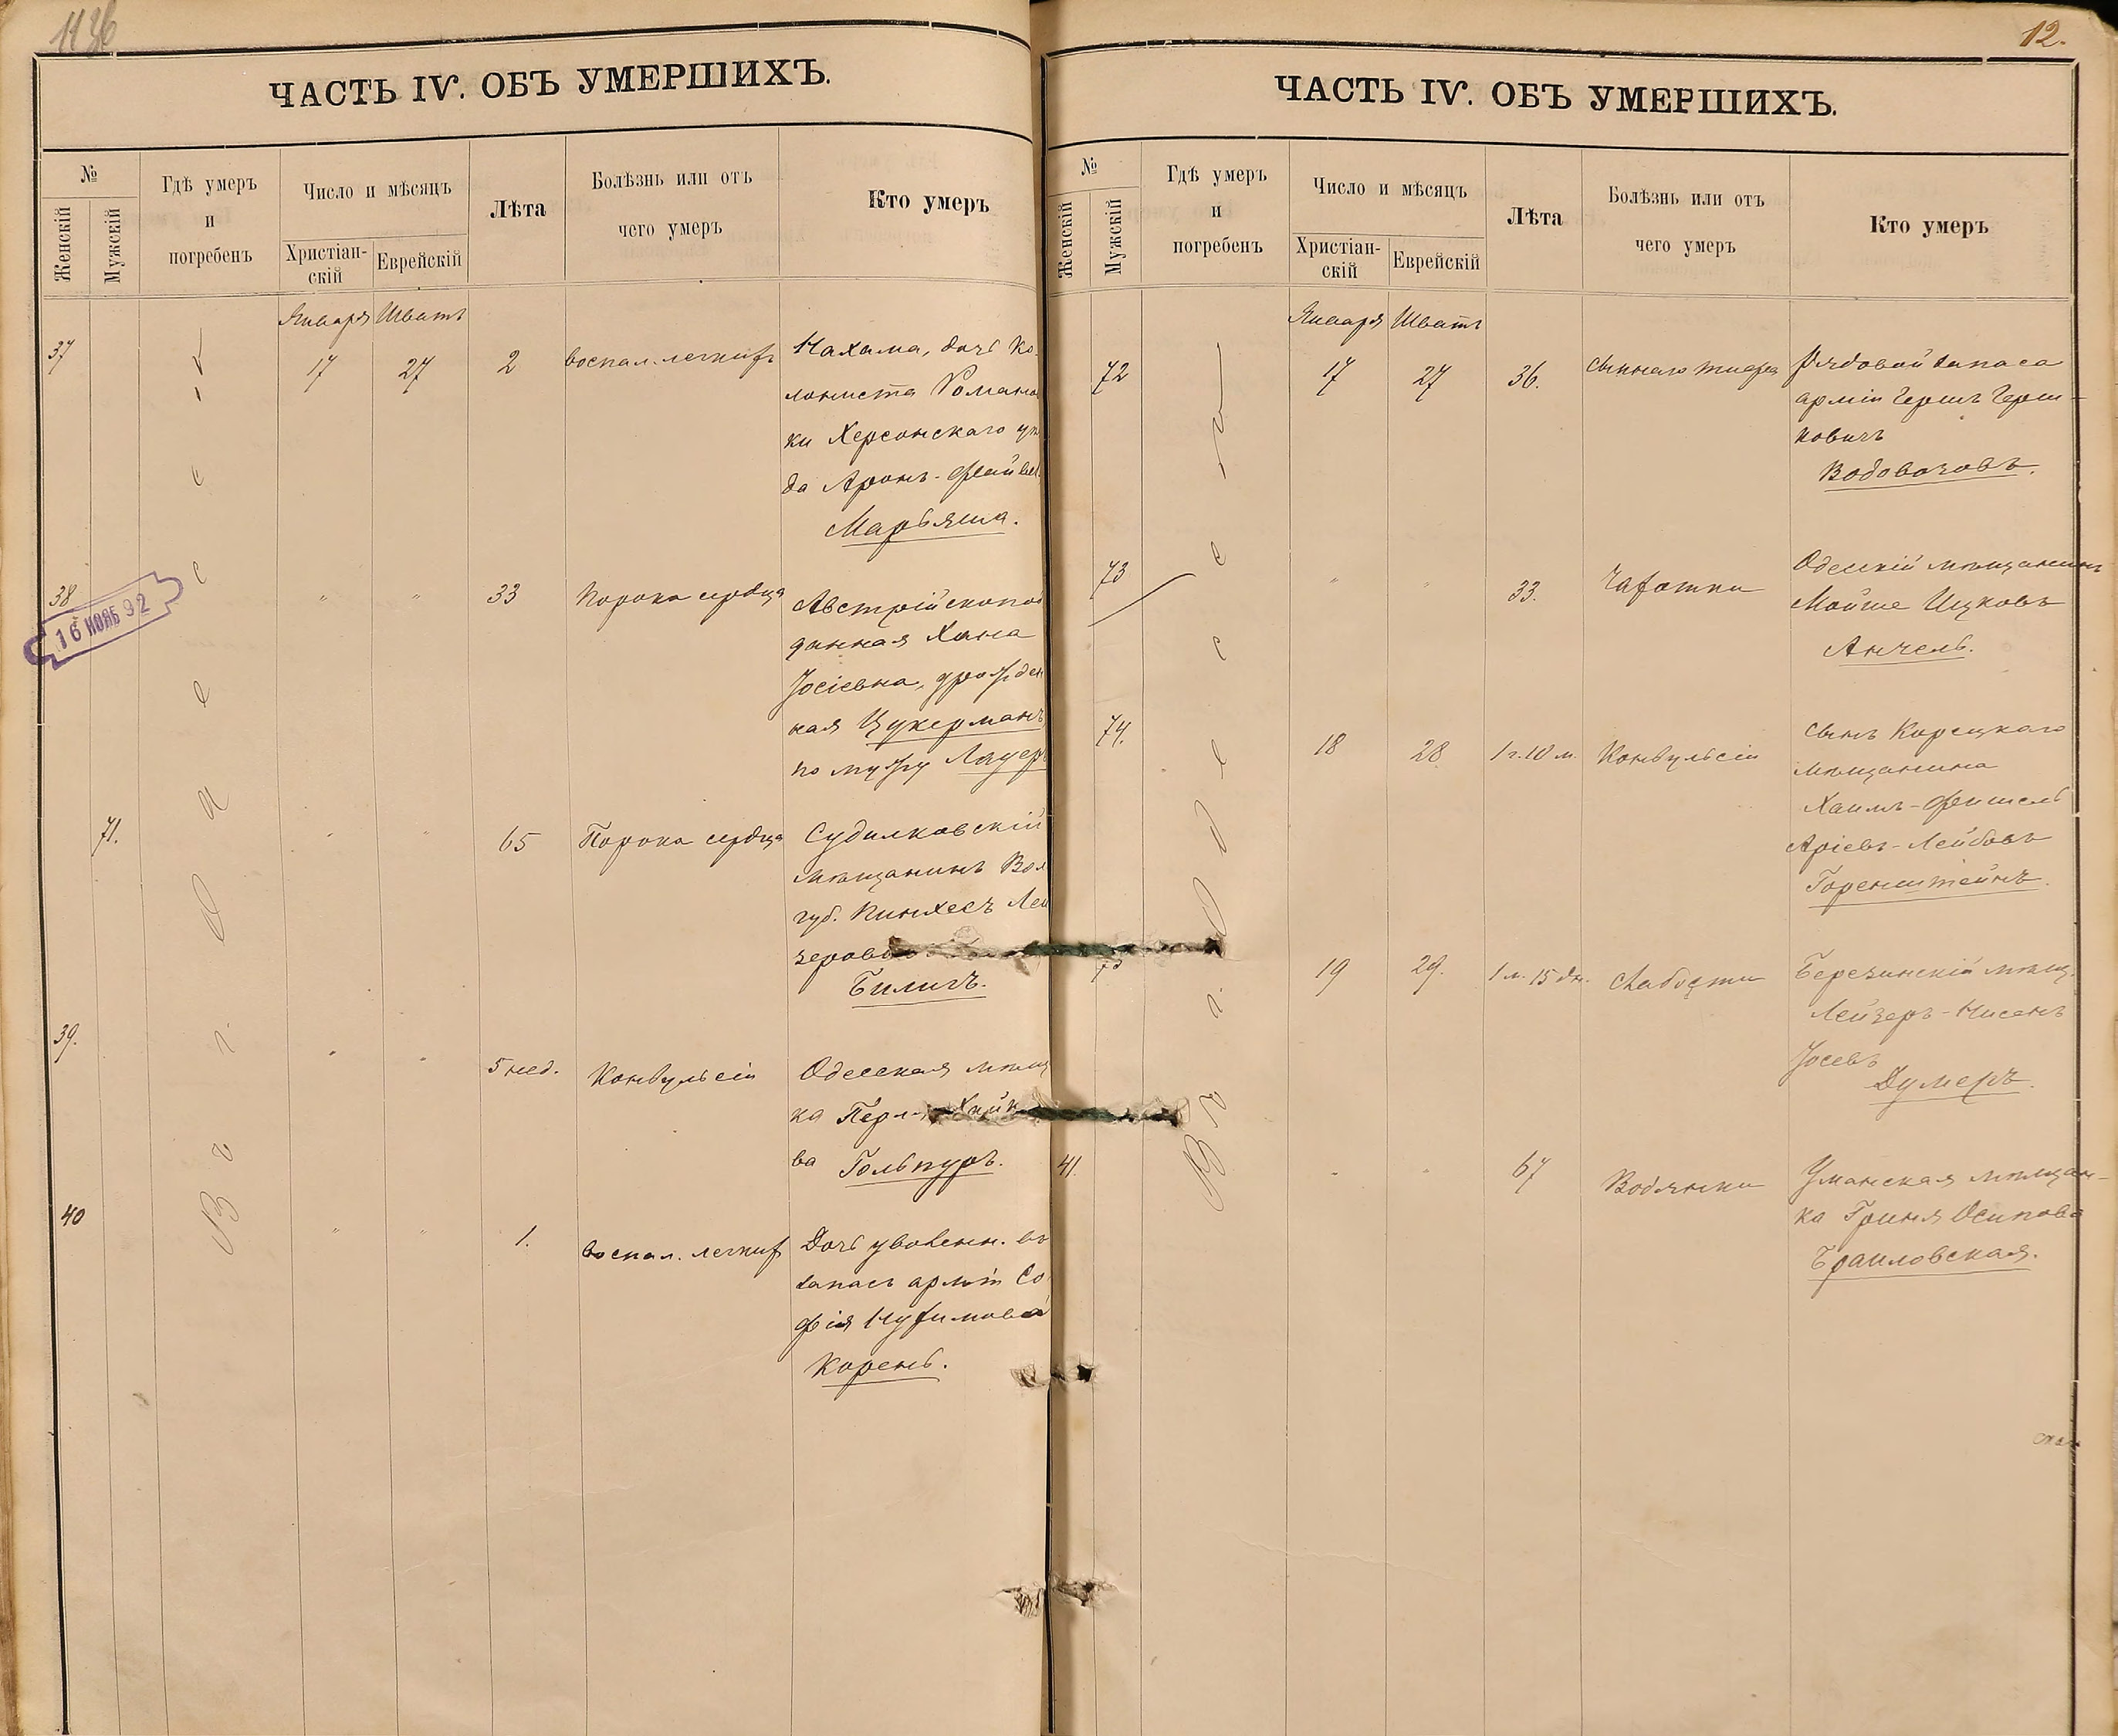 ЧАСТЬ IV. ОБЪ УМЕРШИХЪ.
№
Женскій
Мужскій
Гдѣ умеръ
и
погребенъ
Число и мѣсяцъ
Христіан-
скій
Еврейскій
Лѣта
Болѣзнь или отъ
чего умеръ
Кто умеръ
Января Шватъ
37
17
27
2
воспал. легкихъ
Нахама, дочь Ко-
лониста Романов
ки Херсонскаго уѣз
да Аронъ-Файвел
Марьяша.
38
16 НОЯБ 92
"
"
33
Порока сердца
Австрійскопод
данная Хана
Іосіевна, урожден
ная Цукерманъ
по мужу Лауеръ
71.
"
"
65
Порока сердца
Судилковскій
мѣщанинъ Вол
губ. Пинхесъ Лей
зеровъ
Билигъ.
39.
"
"
5 нед.
Конвульсіи
Одесская мѣщ
ка Перл
ва Гольпуръ.
40
"
"
1.
воспал. легких
Дочь уволенн. въ
запасъ арміи Со
фія Нухимова
Корень.
Въ г. Одессе
12.
ЧАСТЬ IV. ОБЪ УМЕРШИХЪ.
№
Женскій
Мужскій
Гдѣ умеръ
и
погребенъ
Число и мѣсяцъ
Христіан-
скій
Еврейскій
Лѣта
Болѣзнь или отъ
чего умеръ
Кто умеръ
Января Шватъ
72
17
27
36.
сыпнаго тифа
Рядовой запаса
арміи Гершъ Герш-
ковичъ
Водовозовъ.
73
"
"
33.
Чахотки
Одесскій мѣщанинъ
Мойше Ицковъ
Анчель.
74.
18
28
1 г. 10 м.
Конвульсіи
Сынъ Корецкаго
мѣщанина
Хаимъ-Фишель
Аріевъ-Лейбовъ
Горенштейнъ.
75
19
29.
1 м. 15 дн.
Слабости
Березинскій мѣщ.
Лейзеръ-Нисенъ
Іосевъ
Думеръ.
41.
"
"
67
Водянки
Уманская мѣщан-
ка Груня Осипова
Браиловская.
Въ г. Одессе